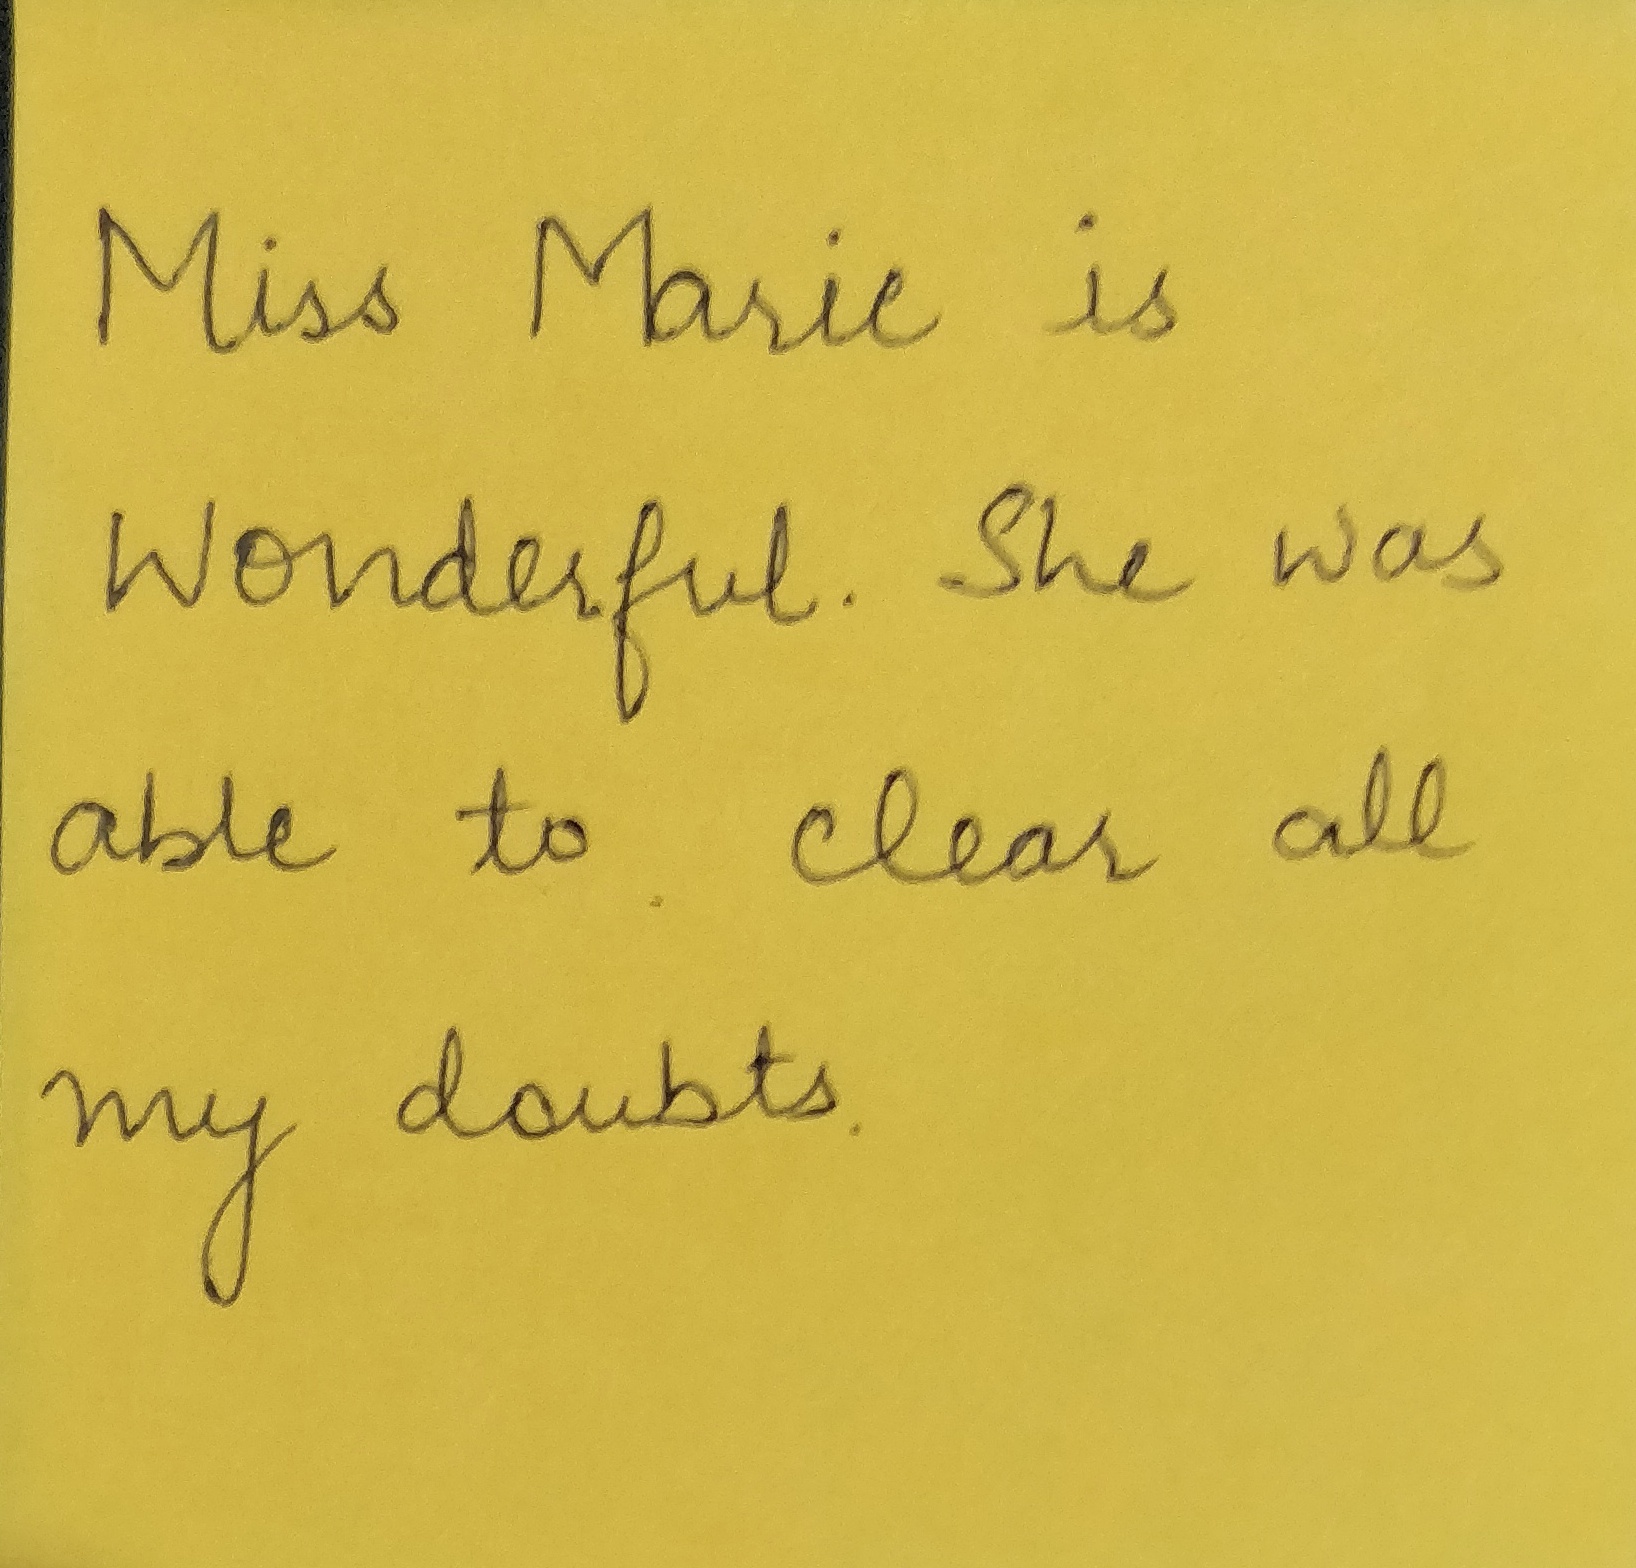 Miss Marie is
Wonderful. She was
able to clear all
my doubts.